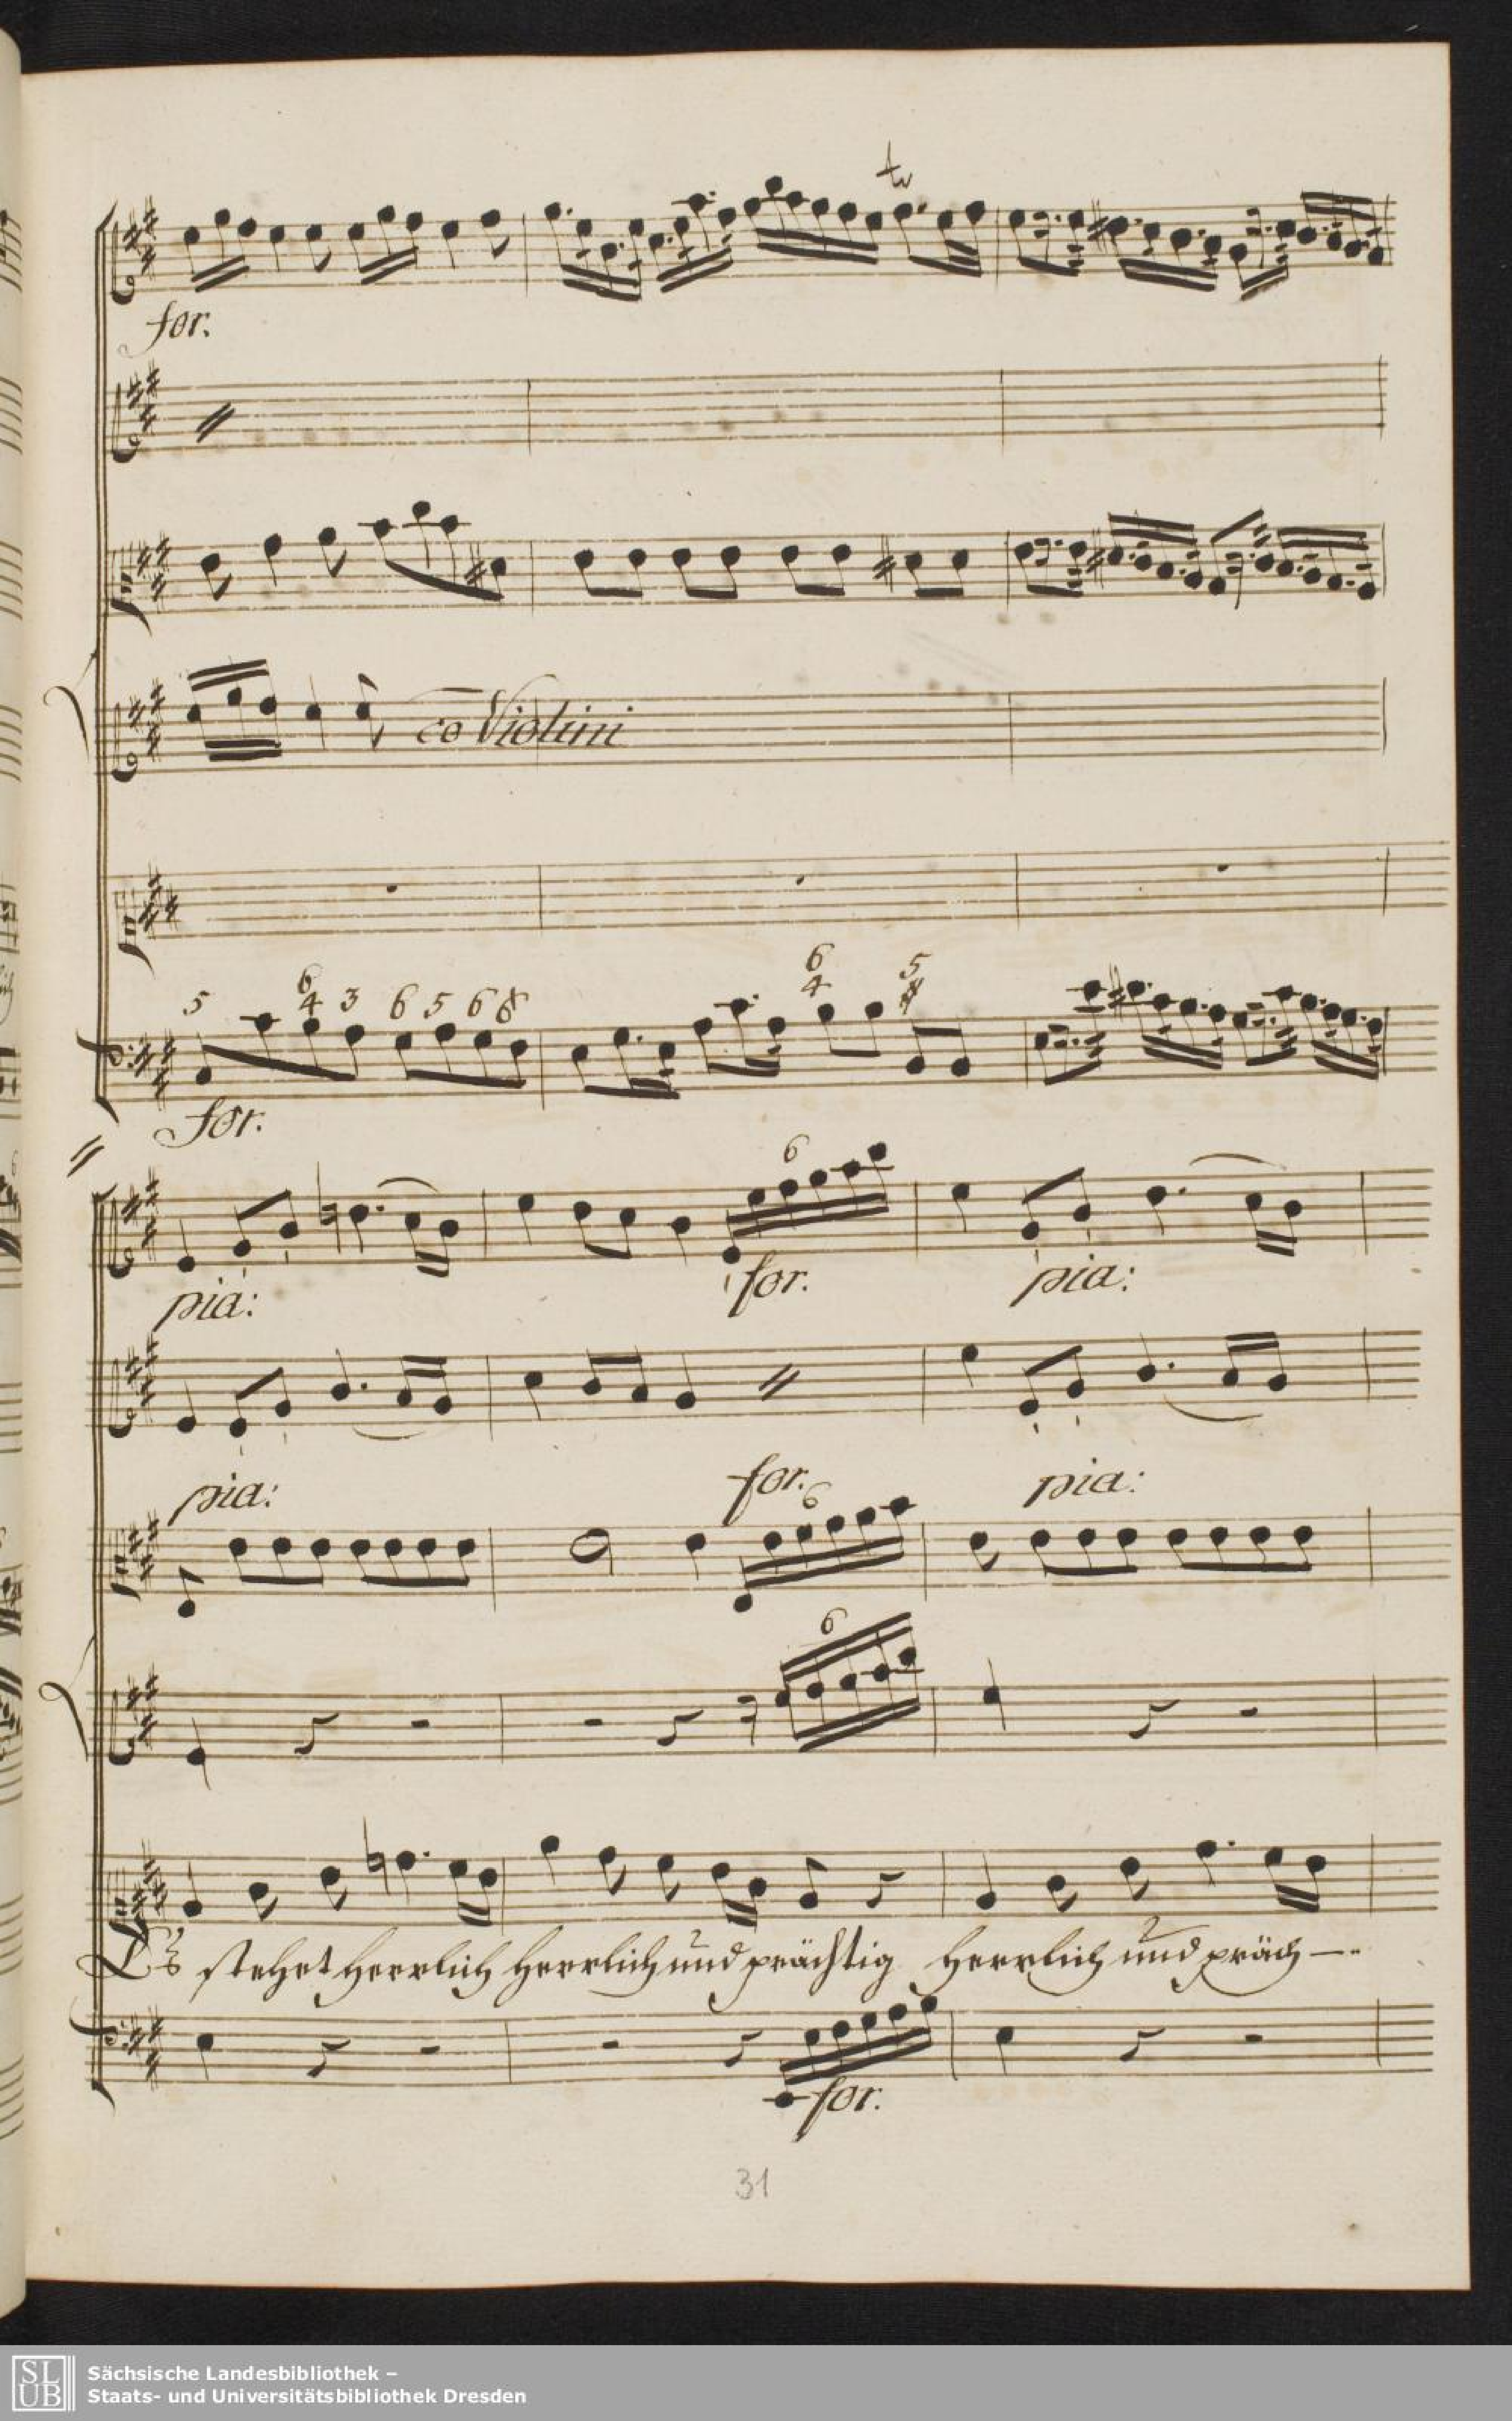 tr
for.
co Violini
5 6 4 3 6 5 6 6 6 4 5
for.
6
pia: for. pia:
pia: for. pia:
6
6
Es stehet herrlich herrlich und prächtig herrlich und präch—..
for.
31
SLUB
Sächsische Landesbibliothek –
Staats- und Universitätsbibliothek Dresden